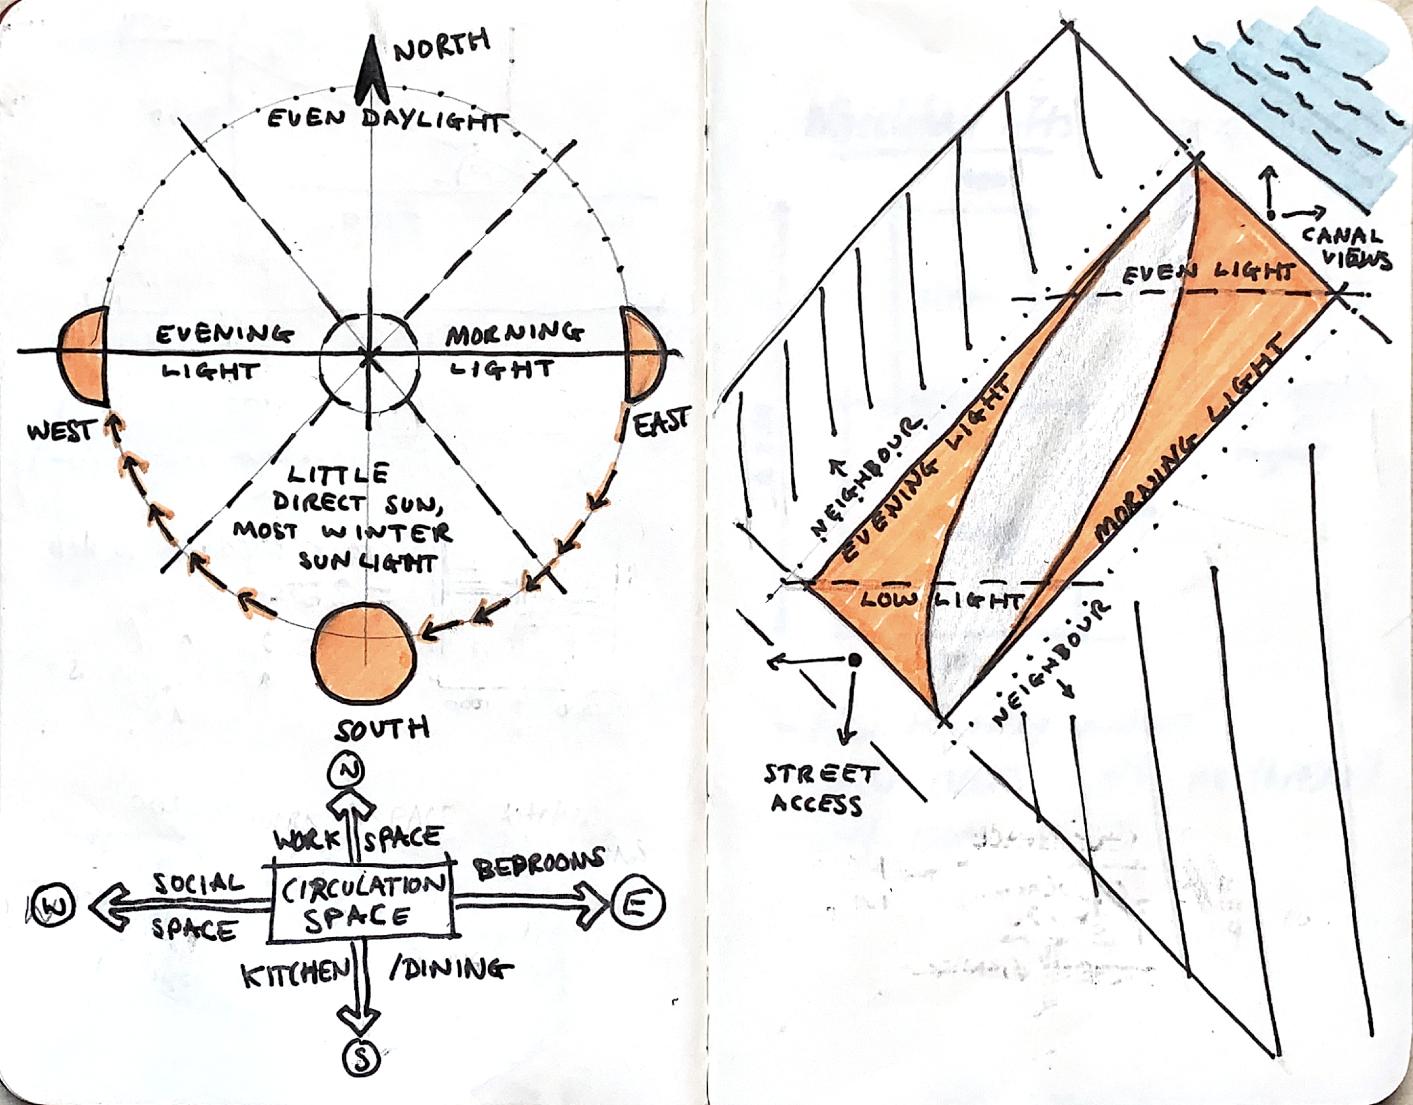 NORTH
EVEN DAYLIGHT
EVENING
LIGHT
MORNING
LIGHT
WEST
EAST
LITTLE
DIRECT SUN,
MOST WINTER
SUNLIGHT
SOUTH
N
WORK SPACE
SOCIAL
SPACE
W
CIRCULATION
SPACE
BEDROOMS
E
KITCHEN /DINING
S
CANAL
VIEWS
EVEN LIGHT
NEIGHBOUR
EVENING LIGHT
MORNING LIGHT
LOW LIGHT
NEIGNBOUR
STREET
ACCESS